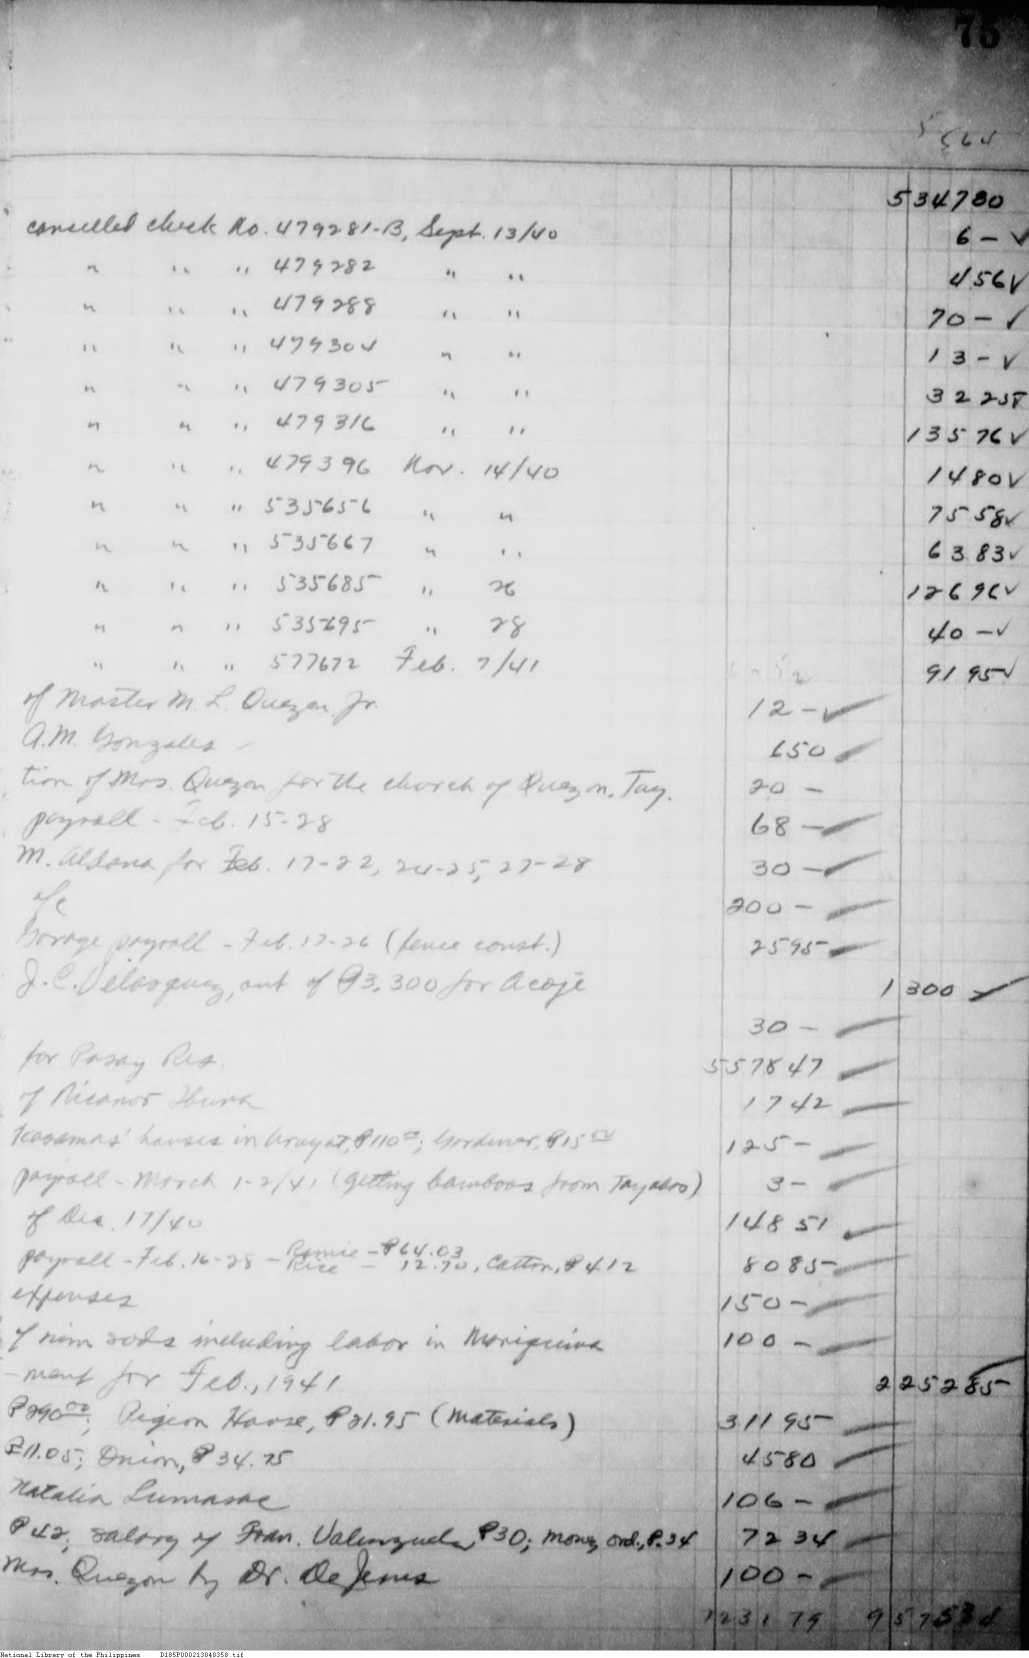 75
564
534780
cancelled check No. 479281-B, Sept. 13/40 6 - ✓
" " " 479282 " " 456 ✓
" " " 479288 " " 70 - ✓
" " " 479304 " " 13 - ✓
" " " 479305 " " 32 25 ✓
" " " 479316 " " 135 76 ✓
" " " 479396 Nov. 14/40 14 80 ✓
" " " 535656 " " 75 58 ✓
" " " 535667 " " 63 83 ✓
" " " 535685 " 26 126 96 ✓
" " " 535695 " 28 40 - ✓
" " " 577672 Feb. 7/41 91 95 ✓
of Master M. L. Quezon Jr. 12 - ✓
A.M. Gonzales 650
tion of Mrs. Quezon for the church of Quezon, Tay. 20 -
payroll - Feb. 15-28 68 -
M. Aldana for Feb. 17-22, 24-25, 27-28 30 -
200 -
Garage payroll - Feb. 17-26 (fence const.) 25 95
J. C. Velasquez, out of ₱3,300 for Acoje 1 300
30 -
for Pasay Res. 5 578 47
of Nicanor 17 42
Kasamas' houses in Arayat, ₱110; Gardener, ₱15 125 -
payroll - March 1-2/41 (getting bamboos from Tayabas) 3 -
of Dec. 17/40 148 51
payroll - Feb. 16-28 - Ramie - ₱64.03
Rice - 12.70, Cotton, ₱4.12 80 85
expenses 150 -
of nim sods including labor in Mariquina 100 -
-ment for Feb., 1941 2 252 85
₱290.00; Pigeon House, ₱21.95 (materials) 311 95
₱11.05; Onion, ₱34.75 45 80
Natalia Lumasac 106 -
₱42; salary of Fran. Valenzuela, ₱30; money ord., ₱.34 72 34
Mrs. Quezon by Dr. De Jesus 100 -
7231 79 9 575 34
National Library of the Philippines D185P000213040358.tif